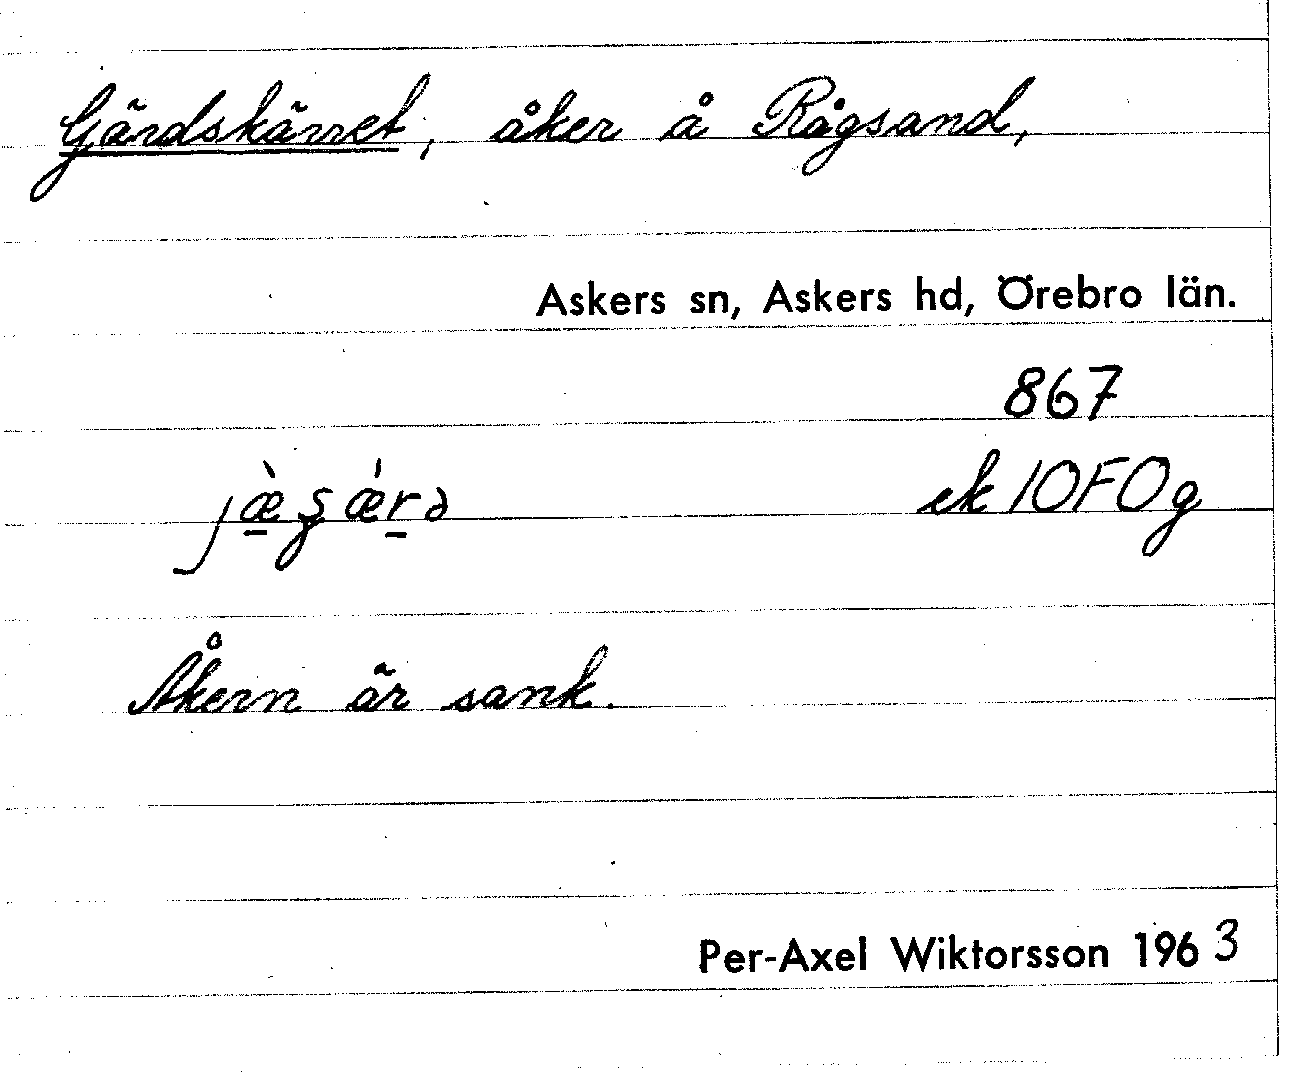 Gärdskärret, åker å Rågsand,
Askers sn, Askers hd, Örebro län.
867
ek 10F0g
Åkern är sank.
Per-Axel Wiktorsson 1963